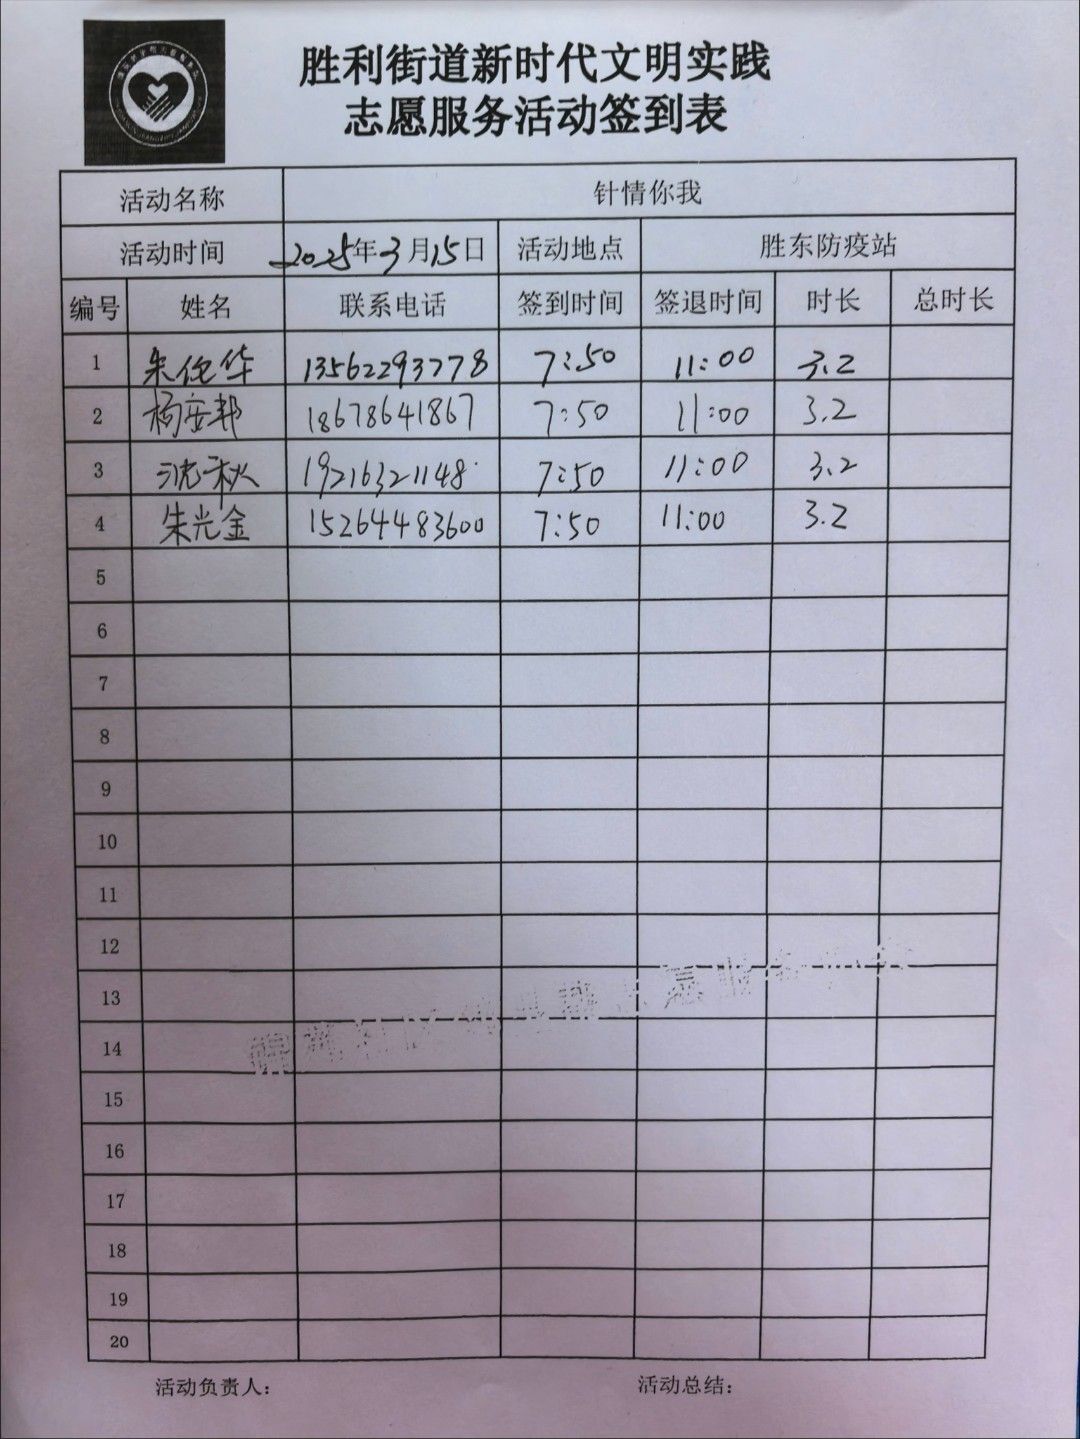 胜利街道新时代文明实践
志愿服务活动签到表
活动名称 针情你我
活动时间 2025年3月15日 活动地点 胜东防疫站
编号 姓名 联系电话 签到时间 签退时间 时长 总时长
1 朱俊华 13562293778 7:50 11:00 3.2
2 杨安邦 18678641867 7:50 11:00 3.2
3 沈秋 19216321148 7:50 11:00 3.2
4 朱光金 15264483600 7:50 11:00 3.2
5
6
7
8
9
10
11
12
13
14
15
16
17
18
19
20
活动负责人: 活动总结: